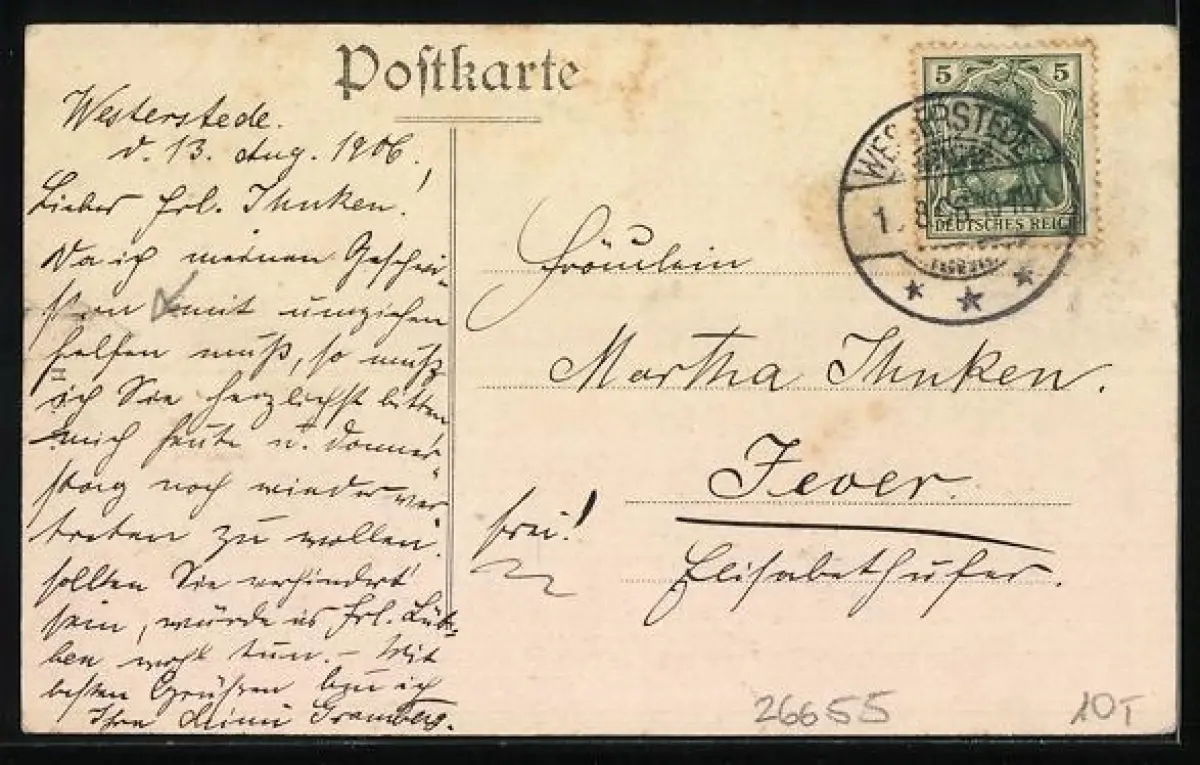 Postkarte
Westerstede.
d. 13. Aug. 1906.
Liebes Frl. Ihnken!
Da ich meinen Geschwi-
stern mit umziehen
helfen muß, so muß
ich Sie herzlichst bitten
mich heute u. Donner-
stag noch wieder ver-
treten zu wollen.
sollten Sie verhindert
sein, würde es Frl. Lüb-
ben wohl tun. – Mit
besten Grüßen bin ich
Ihre Gramberg.
5 5
DEUTSCHES REICH
WESTERSTEDE
Fräulein
Martha Ihnken.
Jever.
frei!
Elisabethufer.
26655
10T